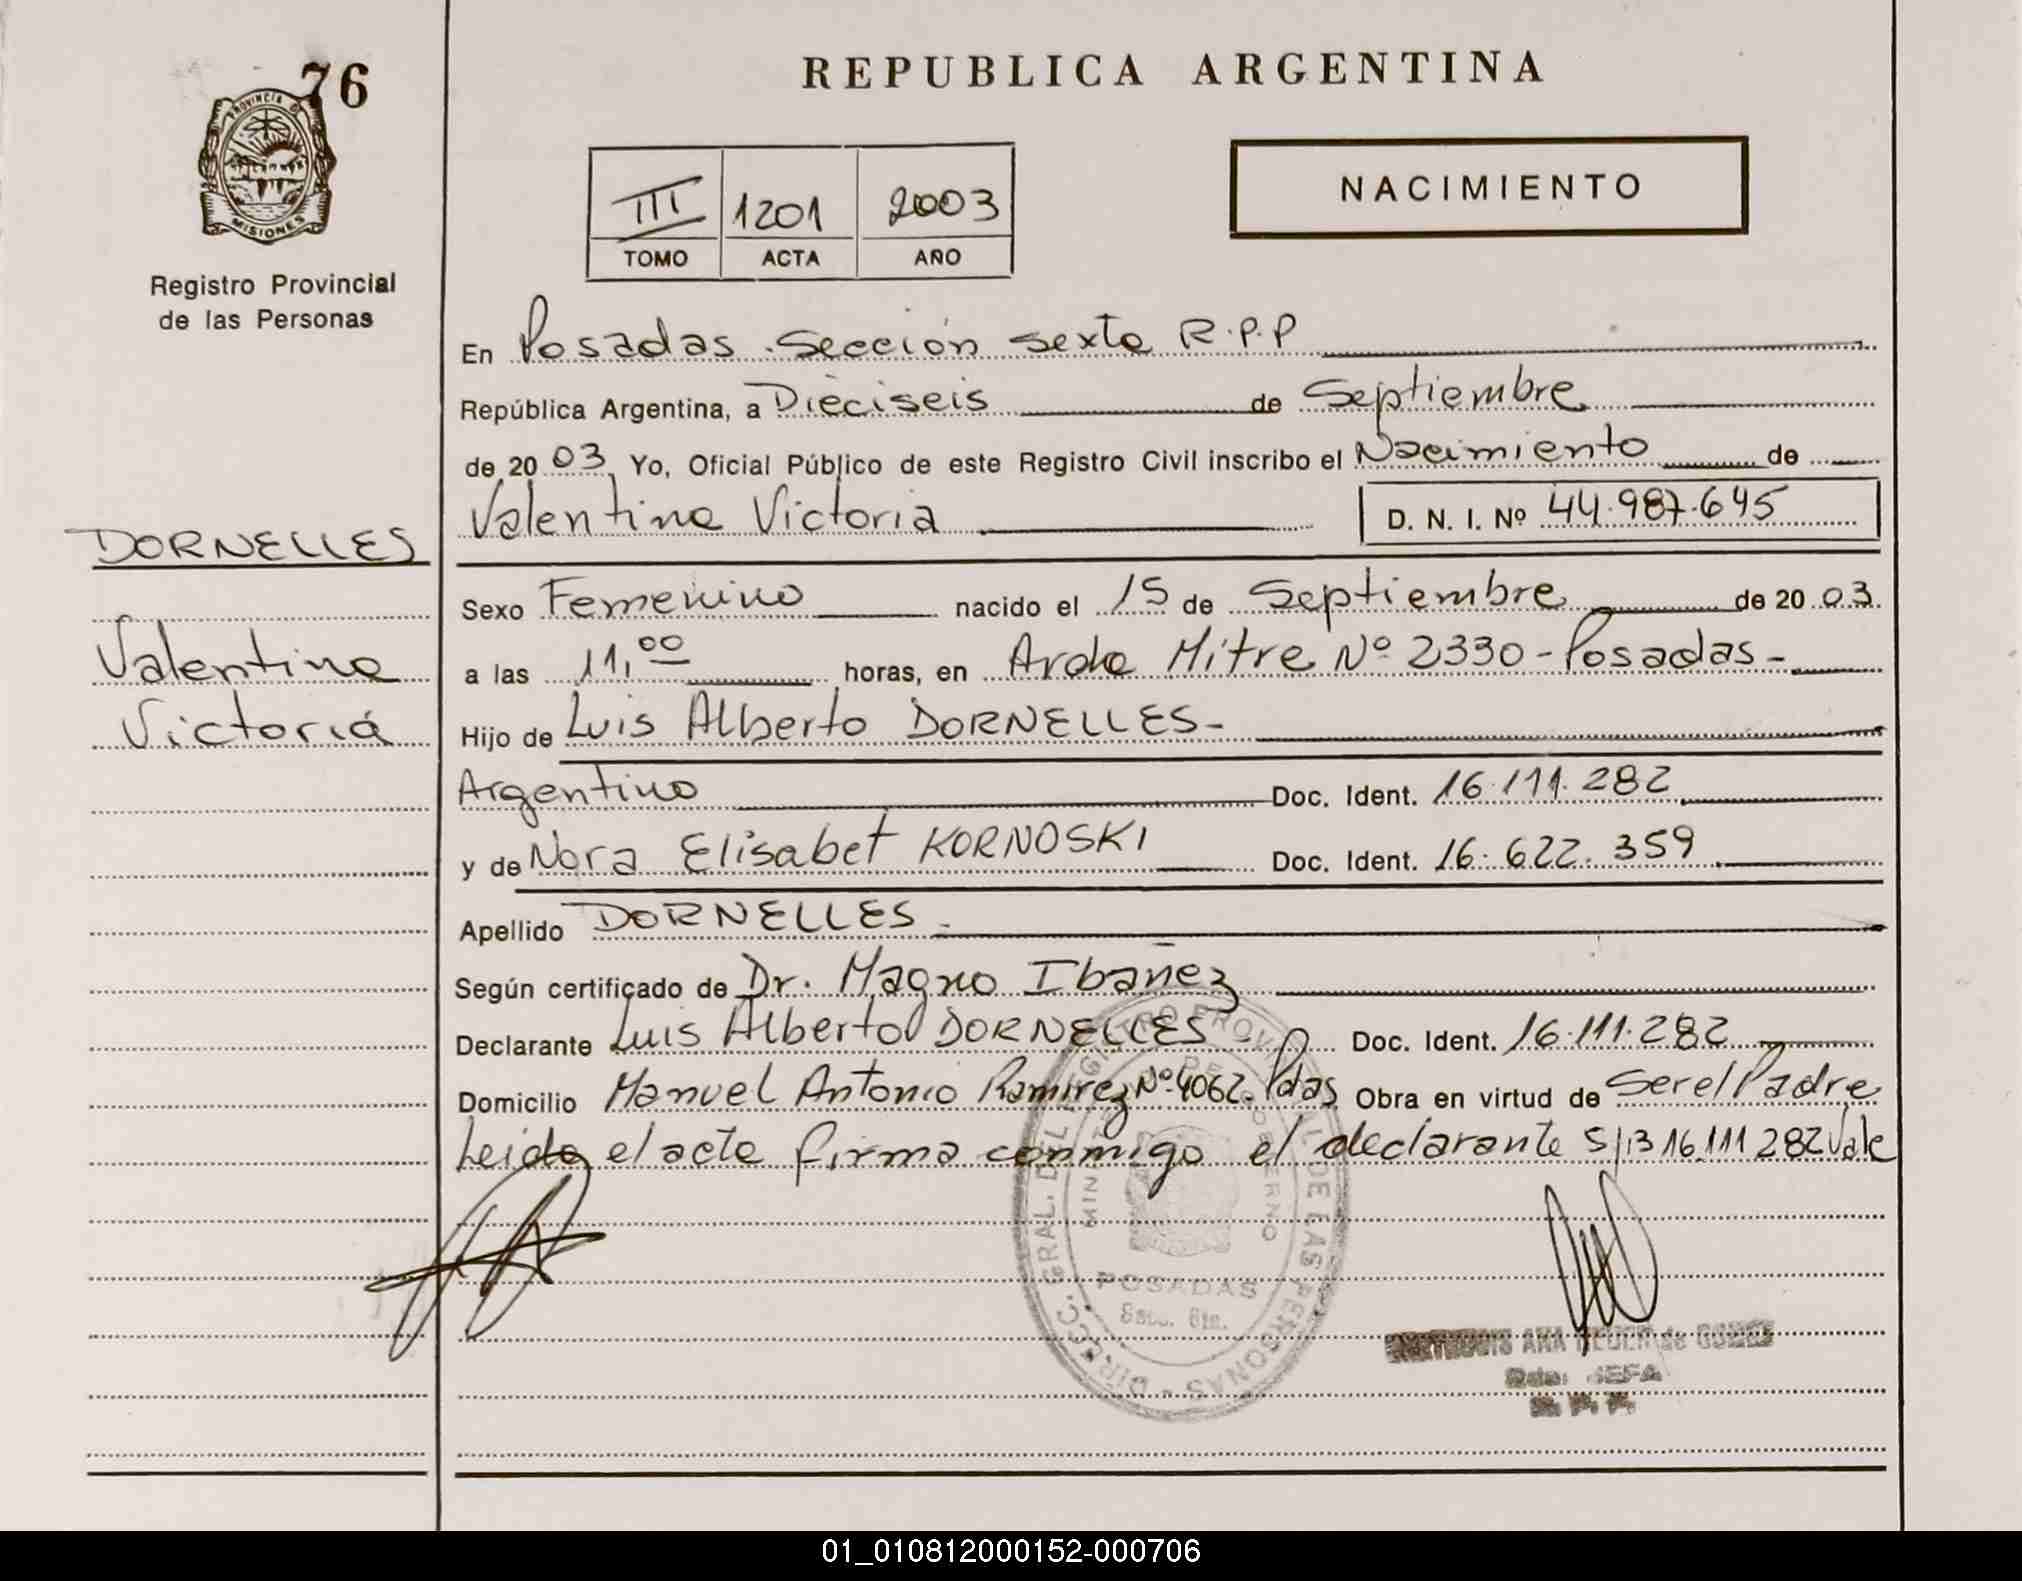 76
PROVINCIA DE
MISIONES
Registro Provincial
de las Personas
REPUBLICA ARGENTINA
III 1201 2003
TOMO ACTA AÑO
NACIMIENTO
En Posadas Sección Sexta R.P.P
República Argentina, a Dieciseis de Septiembre
de 20 03 Yo, Oficial Público de este Registro Civil inscribo el Nacimiento de
Valentina Victoria D. N. I. Nº 44.987.645
DORNELLES
Valentina
Victoria
Sexo Femenino nacido el 15 de Septiembre de 20 03
a las 11,00 horas, en Avda Mitre Nº 2330-Posadas-
Hijo de Luis Alberto DORNELLES-
Argentino Doc. Ident. 16.111.282
y de Nora Elisabet KORNOSKI Doc. Ident. 16.622.359
Apellido DORNELLES-
Según certificado de Dr. Magno Ibañez
Declarante Luis Alberto DORNELLES Doc. Ident. 16.111.282
Domicilio Manuel Antonio Ramirez Nº 4062. Pdas Obra en virtud de Ser el Padre
Leida el acta firma conmigo el declarante S/B 16.111 282 Vale
DIRECC. GRAL. DEL REGISTRO PROVINCIAL DE LAS PERSONAS
MINISTERIO DE GOBIERNO
POSADAS
Secc. 6ta.
ANA de GOMEZ
JEFA
R. P. P.
01_010812000152-000706